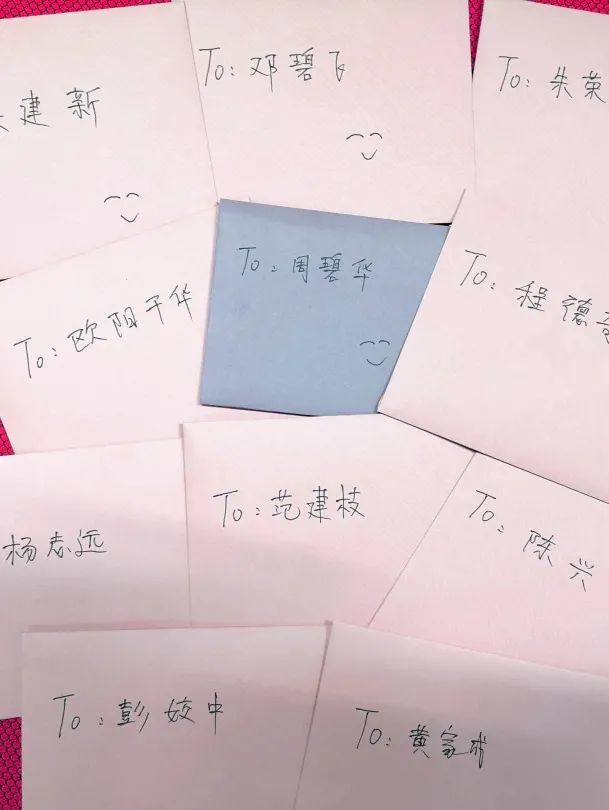 建新
To: 邓碧飞
To: 朱荣
To: 欧阳干华
To: 周碧华
To: 程德
杨志远
To: 范建枝
To: 陈兴
To: 彭姣中
To: 黄家